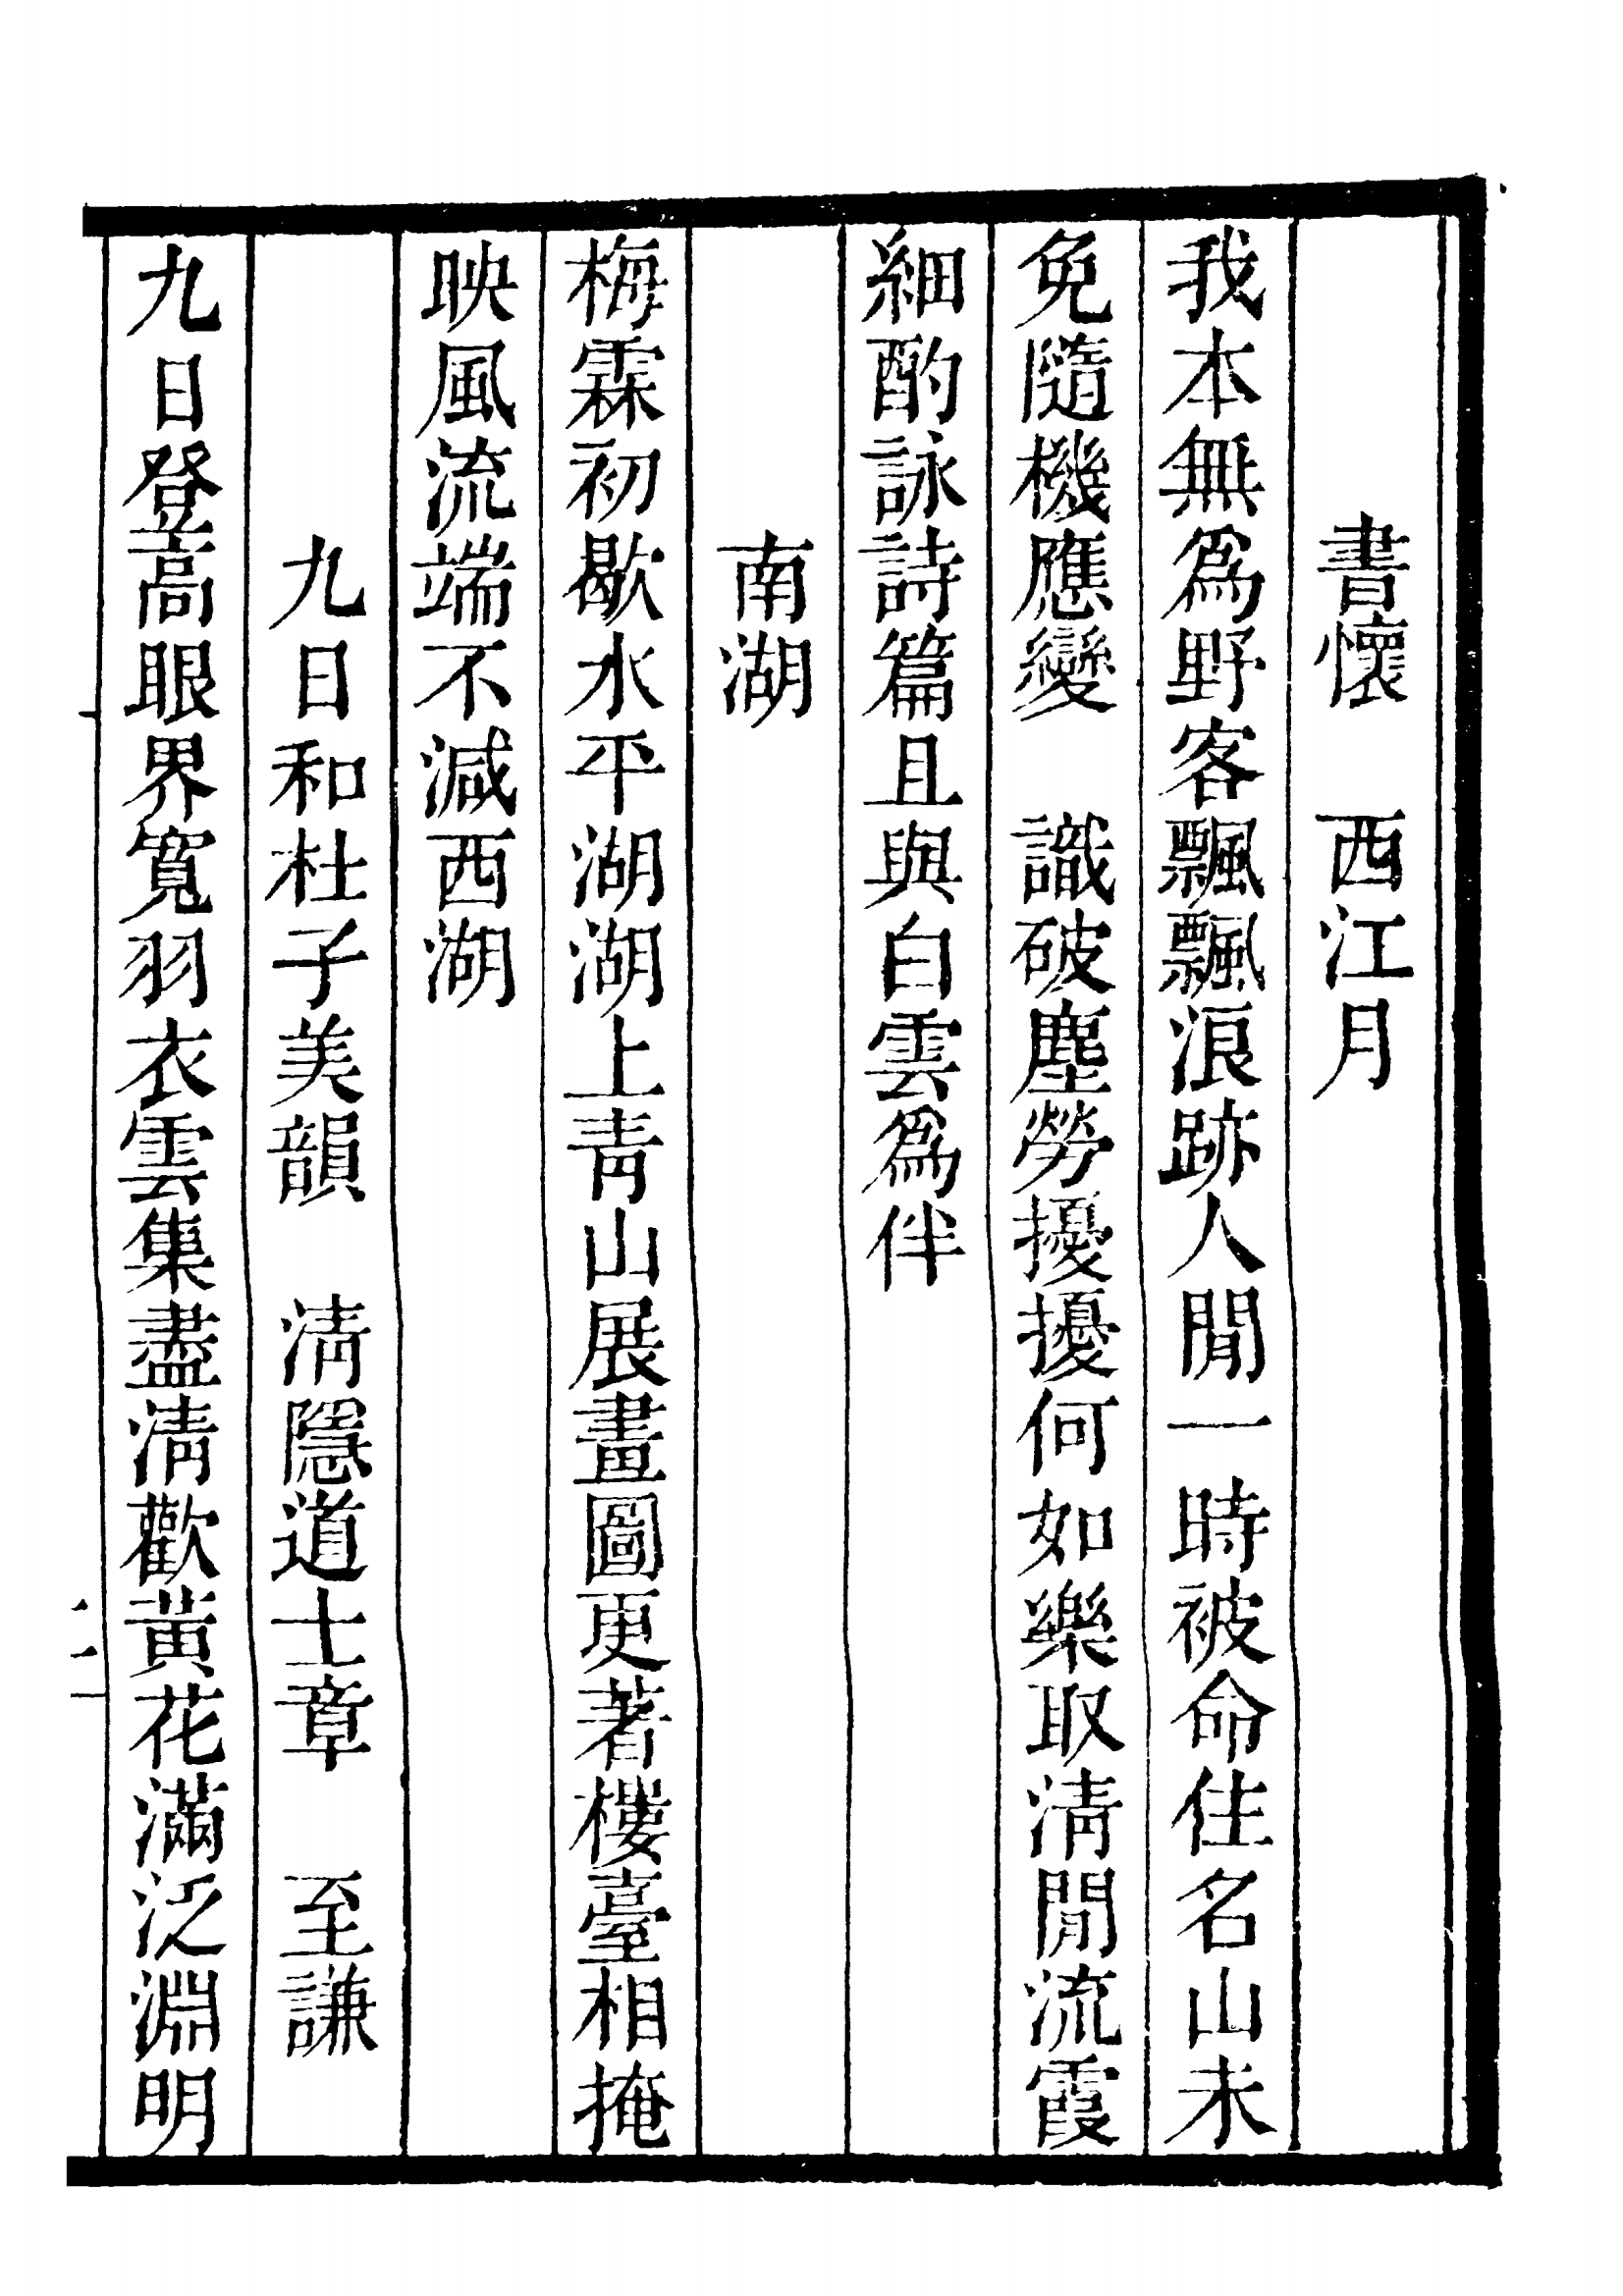 書懷　西江月
我本無爲野客飄飄浪跡人閒一時被命住名山未
免隨機應變　識破塵勞擾擾何如樂取淸閒流霞
細酌詠詩篇且與白雲爲伴
南湖
梅霖初歇水平湖湖上靑山展畫圖更著樓臺相掩
映風流端不減西湖
九日和杜子美韻　淸隱道士章　至謙
九日登高眼界寬羽衣雲集盡淸歡黃花滿泛淵明